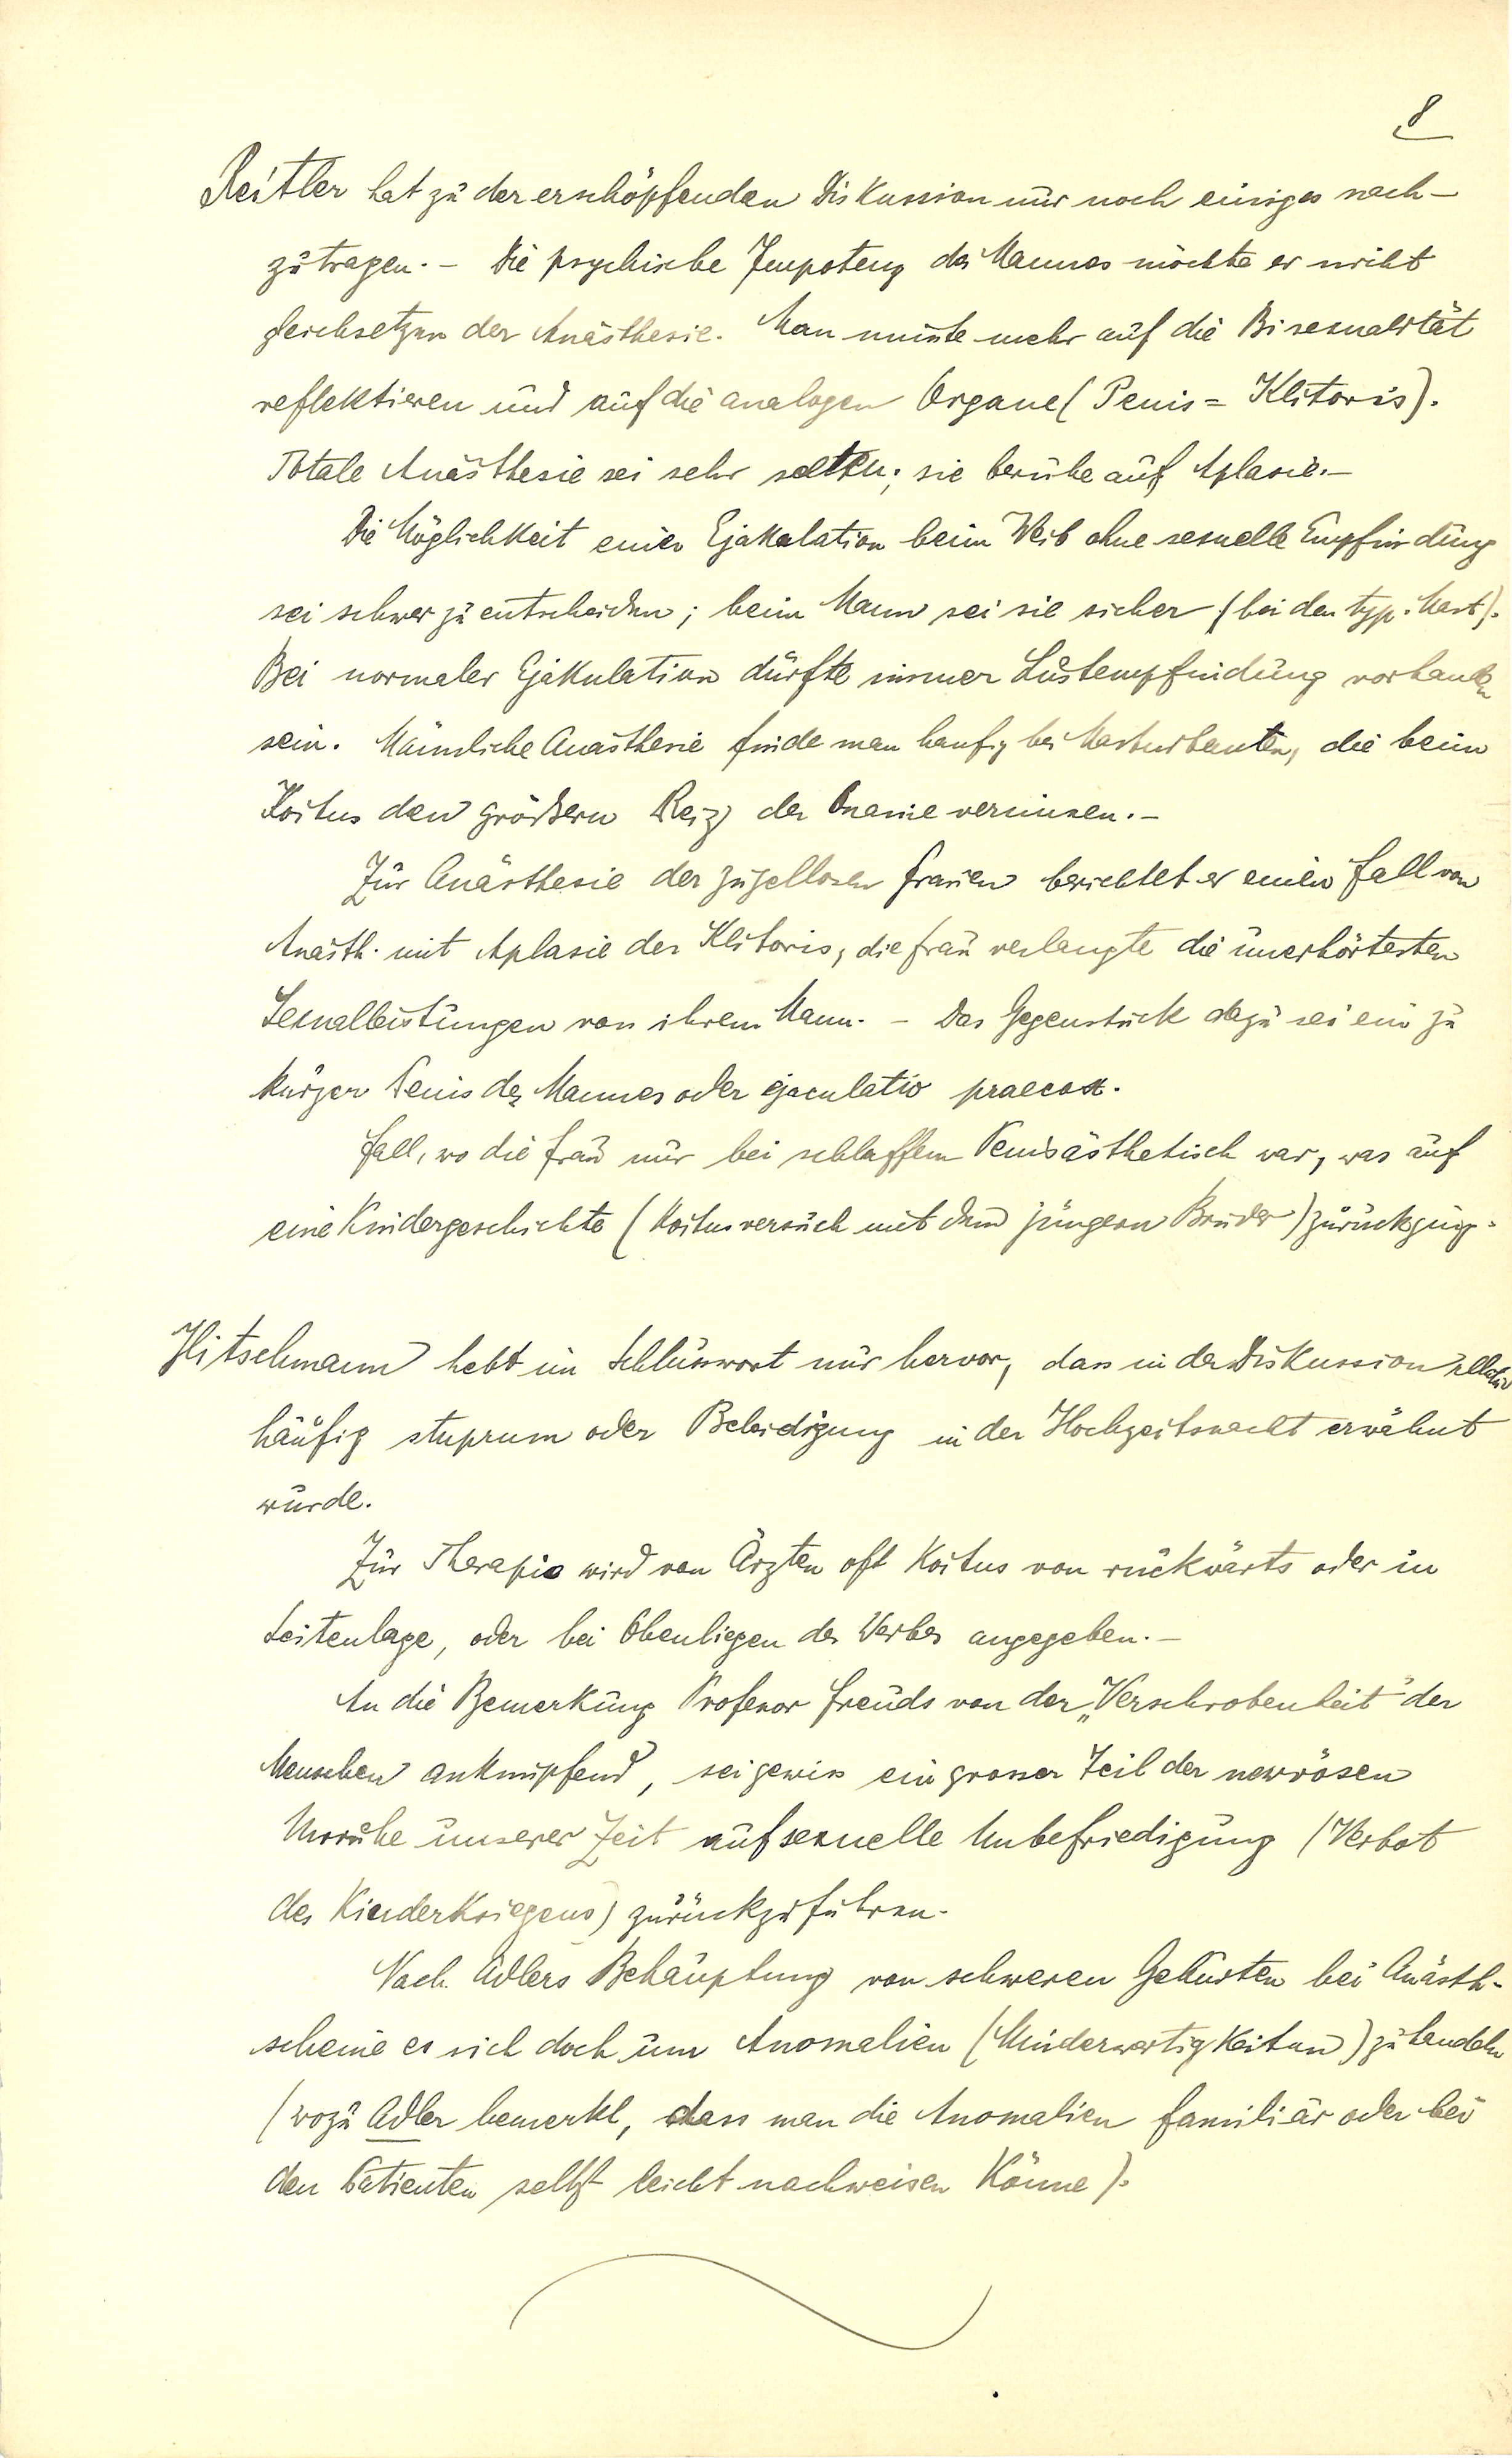 8
Reitler hat zu der erschöpfenden Diskussion nur noch einiges nach-
zutragen. – Die psychische Impotenz des Mannes möchte er nicht
gleichsetzen der Anästhesie. Man müsste mehr auf die Bisexualität
reflektieren und auf die analogen Organe (Penis = Klitoris).
Totale Anästhesie sei sehr selten; sie beruhe auf Aplasie. –
Die Möglichkeit einer Ejakulation beim Weib ohne sexuelle Empfindung
sei schwer zu entscheiden; beim Mann sei sie sicher (bei den typ. Mast).
Bei normaler Ejakulation dürfte immer Lustempfindung vorhanden
sein. Männliche Anästhesie finde man häufig bei Masturbanten, die beim
Koitus den größern Reiz der Onanie vermissen. –
Zur Anästhesie der zügellosen Frauen berichtet er einen Fall von
Anästh. mit Aplasie der Klitoris, die Frau verlangte die unerhörtesten
Sexualleistungen von ihrem Mann. – Das Gegenstück dazu sei ein zu
kurzer Penis des Mannes oder ejaculatio praecox.
Fall, wo die Frau nur bei schlaffem Penis ästhetisch war, was auf
eine Kindergeschichte (Koitusversuch mit dem jüngern Bruder) zurückging.
Hitschmann hebt im Schlusswort nur hervor, dass in der Diskussion relativ
häufig stuprum oder Beleidigung in der Hochzeitsnacht erwähnt
wurde.
Zur Therapie wird von Ärzten oft Koitus von rückwärts oder in
Seitenlage, oder bei Obenliegen des Weibes angegeben. –
An die Bemerkung Professor Freuds von der „Verschrobenheit" der
Menschen anknüpfend, sei gewiss ein grosser Teil der nervösen
Unruhe unserer Zeit auf sexuelle Unbefriedigung (Verbot
des Kinderkriegens) zurückzuführen.
Nach Adlers Behauptung von schweren Geburten bei Anästh.
scheine es sich doch um Anomalien (Minderwertigkeiten) zu handeln
(wozu Adler bemerkt, dass man die Anomalien familiär oder bei
den Patienten selbst leicht nachweisen könne).